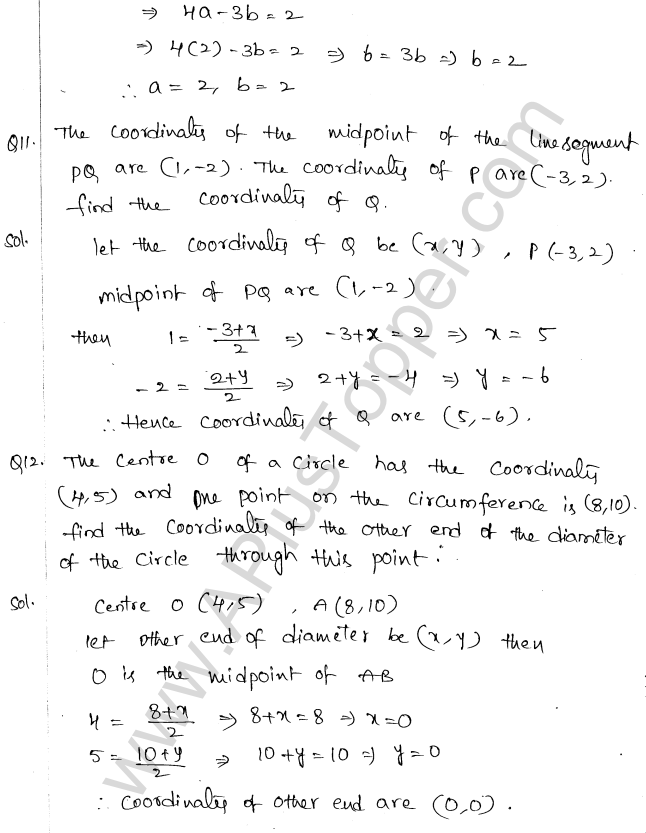 ⇒ 4a - 3b = 2
⇒ 4(2) - 3b = 2 ⇒ 6 = 3b ⇒ b = 2
∴ a = 2, b = 2
Q11. The coordinates of the midpoint of the linesegment
PQ are (1,-2). The coordinates of P are (-3,2).
find the coordinates of Q.
Sol. let the coordinates of Q be (x,y), P(-3,2).
midpoint of PQ are (1,-2).
then 1 = (-3+x)/2 ⇒ -3+x = 2 ⇒ x = 5
-2 = (2+y)/2 ⇒ 2+y = -4 ⇒ y = -6
∴ Hence coordinates of Q are (5,-6).
Q12. The centre O of a circle has the coordinates
(4,5) and one point on the circumference is (8,10).
find the coordinates of the other end of the diameter
of the circle through this point.
Sol. Centre O (4,5), A(8,10)
let other end of diameter be (x,y) then
O is the midpoint of AB
4 = (8+x)/2 ⇒ 8+x = 8 ⇒ x=0
5 = (10+y)/2 ⇒ 10+y = 10 ⇒ y=0
∴ coordinates of other end are (0,0).
www.APlusTopper.com